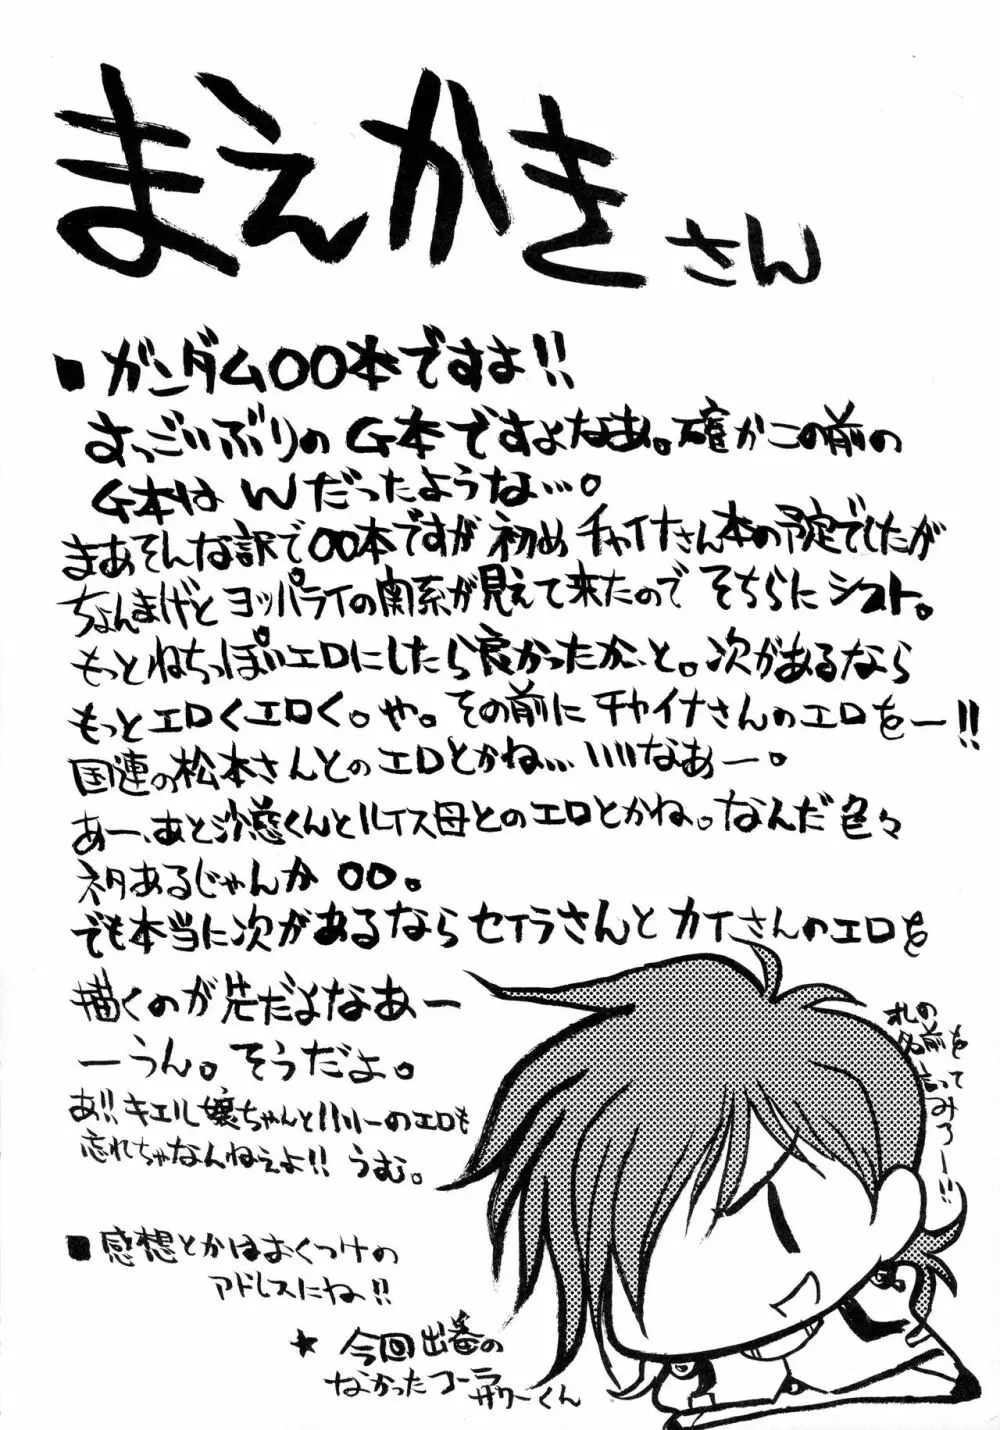 まえかきさん
■ガンダム〇〇本ですよ!!
すっごいぶりのG本ですよなあ。確かこの前の
G本はWだったような…。
まあそんな訳で〇〇本ですが初めチャイナさん本の予定でしたが
ちょんまげとヨッパライの関系が見えて来たのでそちらにシフト。
もっとねちっぽいエロにしたら良かったか、と。次があるなら
もっとエロくエロく。や。その前にチャイナさんのエロをー!!
国連の松本さんとのエロとかね…いいなあー。
あー、あと沙慈くんとルイス母とのエロとかね。なんだ色々
ネタあるじゃんか〇〇。
でも本当に次があるならセイラさんとカイさんのエロを
描くのが先だよなあー
ーうん。そうだよ。
あ!!キエル嬢ちゃんとハリーのエロも
忘れちゃなんねぇよ!!うむ。
■感想とかはおくつけの
アドレスにね!!
★今回出番の
なかったコーラ
サワーくん
オレの
名前を
言って
みろー!!